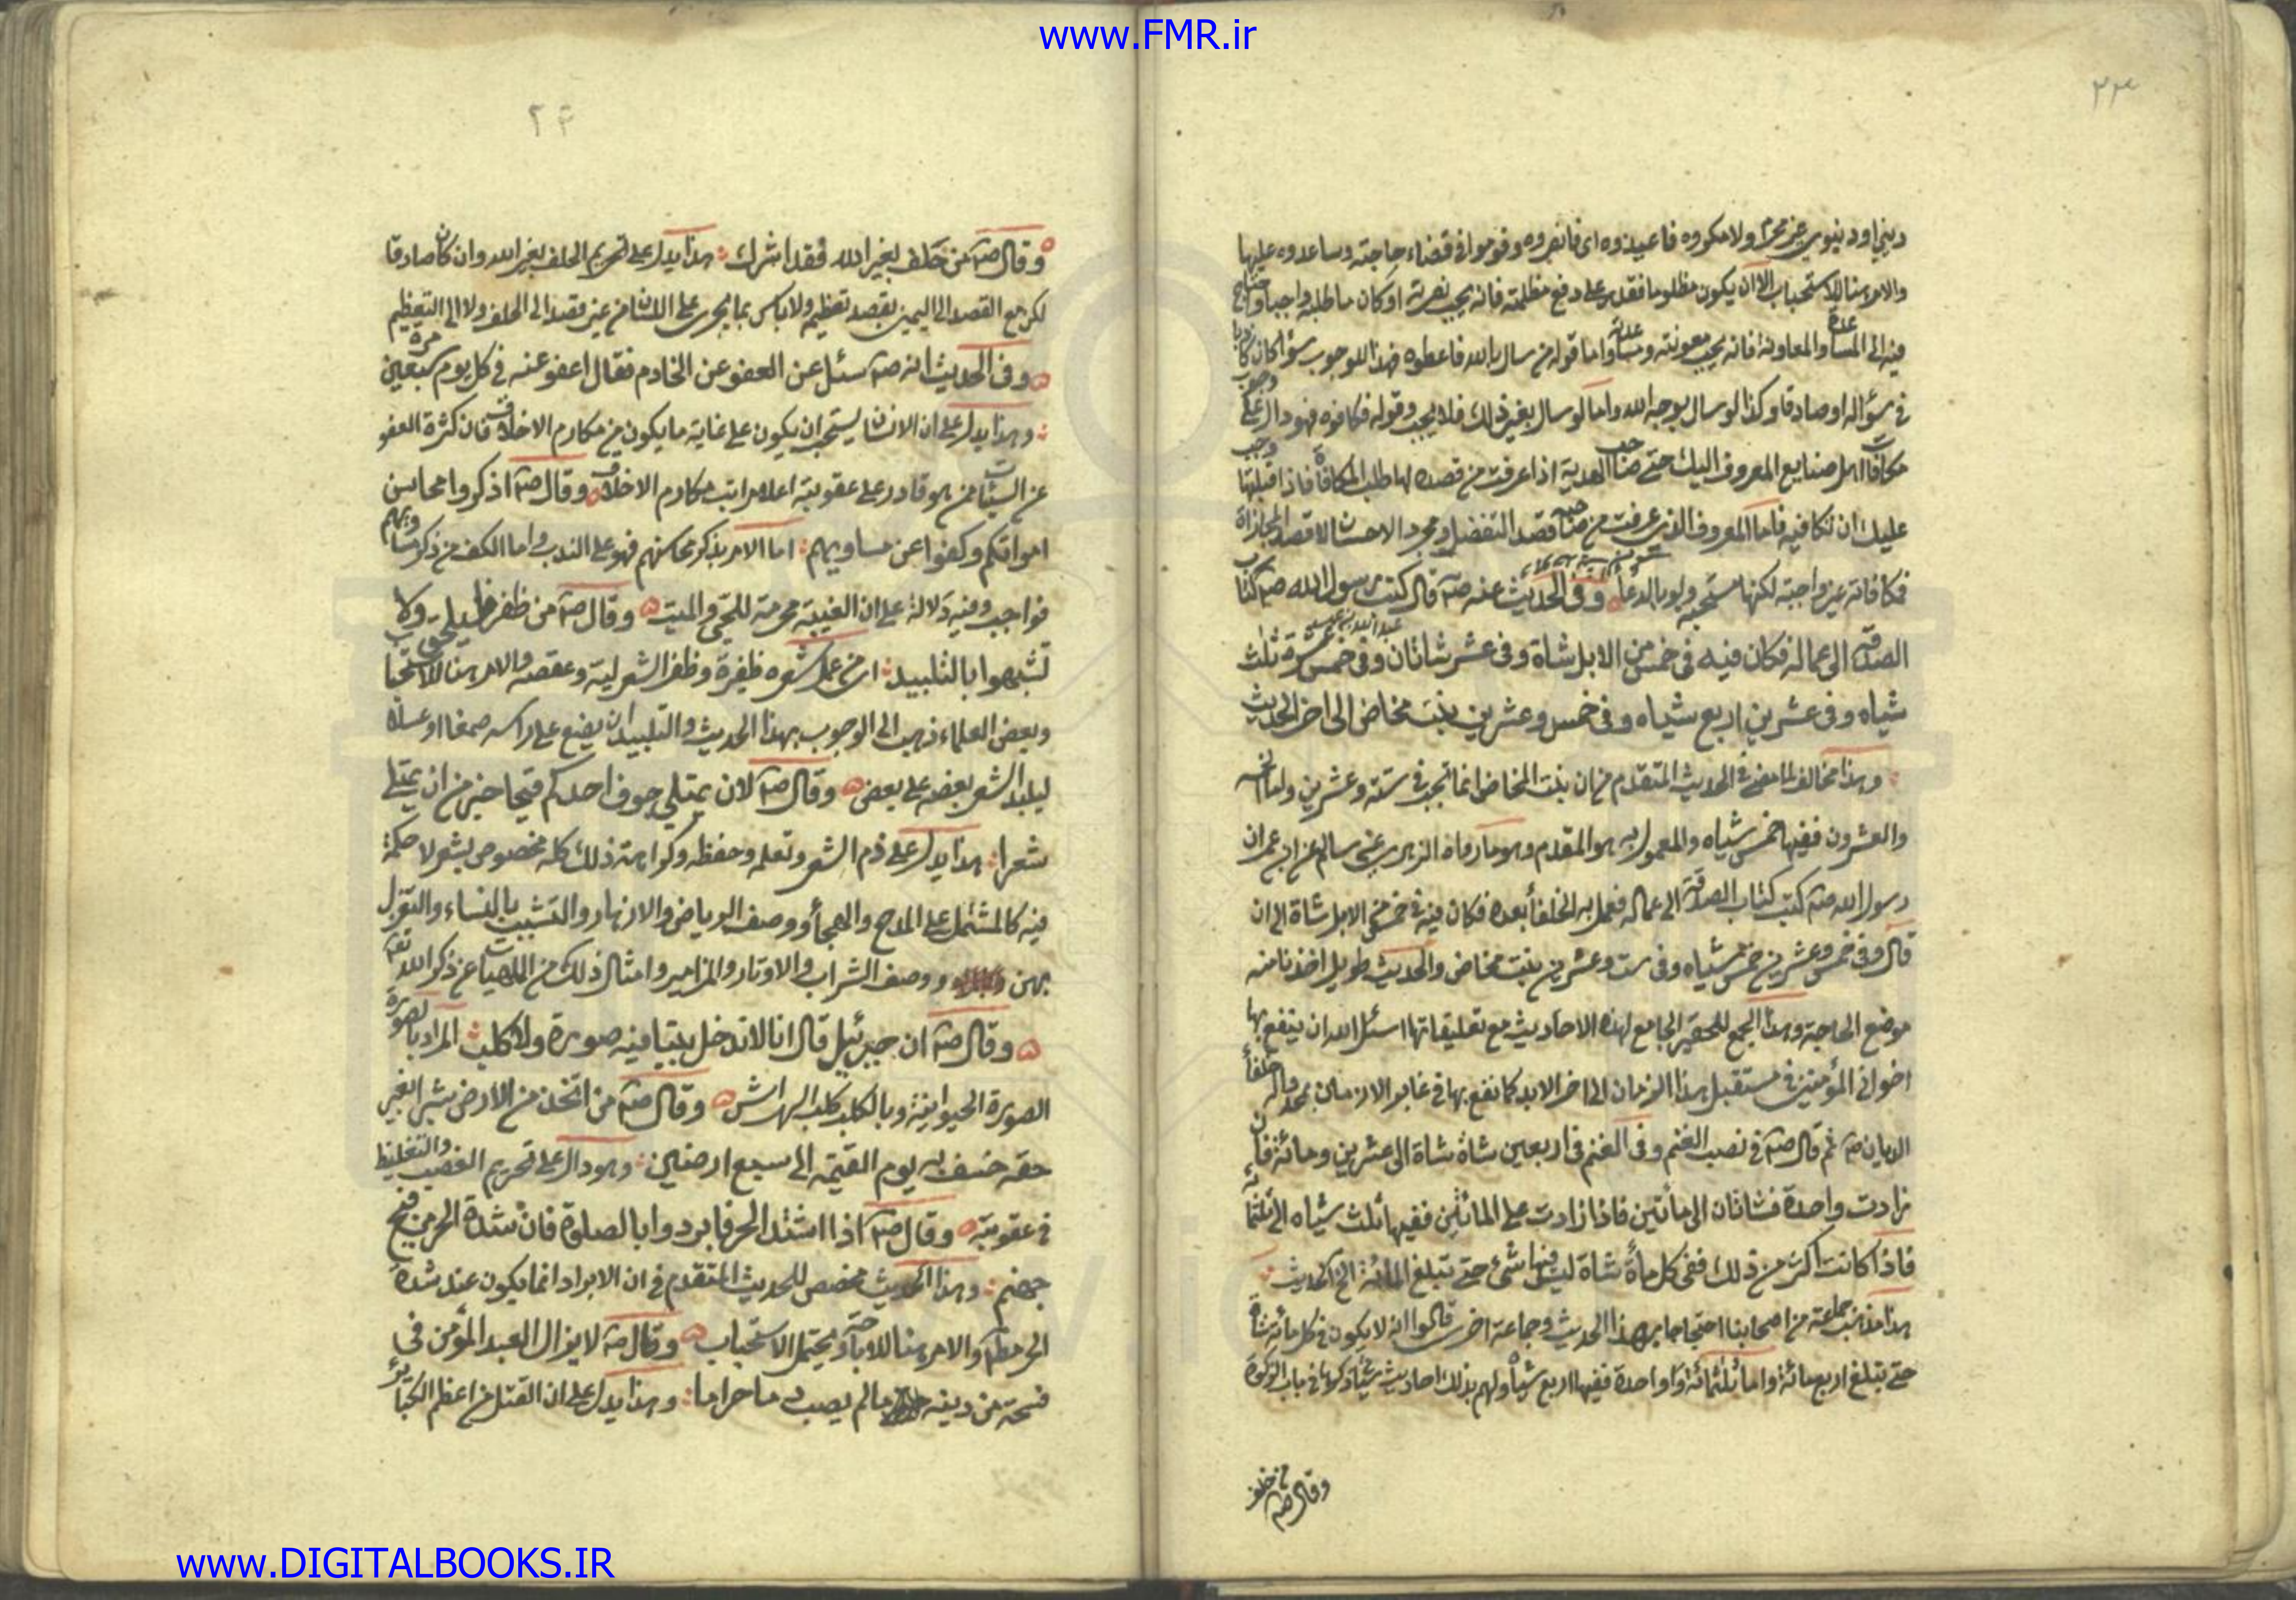 www.FMR.ir
ديني او دنيوي غير محرم ولا مكروه فاعينوه اى فانصروه وقوموا فى قضاء حاجته وساعدوه عليها
والامر هنا للاستحباب الا ان يكون مظلوما فقدر على دفع مظلمته فانه يجب نصرته او كان ما طلبه واجبا
فيه الى المساعدة والمعاونة فانه يجب معونته ومساعدته واما قوله من سال بالله فاعطوه فهذا للوجوب سواء كان كاذبا
فى سؤاله او صادقا وكذا لو سال بوجه الله واما لو سال بغير ذلك فلا يجب وقوله فكافوه فهو دال على وجوب
مكافات اهل صنايع المعروف اليك حتى صاحب الهدية اذا عرفت من قصده لها طلب المكافاة فاذا قبلتها وجب
عليك ان تكافيه فاما المعروف الذى عرفت من صاحبه قصد التفضل ومجرد الاحسان لا قصد المجازاة
فكافاته غير واجبة لكنها مستحبة ولو بالدعاء وفى الحديث عنه صم قال كتب رسول الله صم كتاب
الصدقة الى عماله فكان فيه فى خمس من الابل شاة وفى عشر شاتان وفى خمس عشرة ثلث
شياه وفى عشرين اربع شياه وفى خمس وعشرين بنت مخاض الى اخر الحديث
وهذا مخالف لما مضى فى الحديث المتقدم من ان بنت المخاض انما تجب فى ستة وعشرين واما الخمسة
والعشرون ففيها خمس شياه والمعمول به هو المقدم وهو ما رواه الزهرى عن سالم عن ابن عمر ان
رسول الله صم كتب كتاب الصدقة الى عماله فعمل به الخلفاء بعده فكان فيه فى خمس من الابل شاة الى ان
قال وفى خمس وعشرين خمس شياه وفى ست وعشرين بنت مخاض والحديث طويل اخذنا منه
موضع الحاجة وهذا الجمع للحقير الجامع لهذه الاحاديث مع تعليقاتها اسئل الله ان ينفع بها
اخوانى المؤمنين فى مستقبل هذا الزمان الى اخر الابد كما نفع بها فى غابر الازمان بمحمد واله
ثم قال صم فى نصب الغنم وفى الغنم فى اربعين شاة شاة الى عشرين ومائة فان
زادت واحدة فشاتان الى مأتين فاذا زادت على المائتين ففيها ثلث شياه الى ثلثمائة
فاذا كانت اكثر من ذلك ففى كل مأة شاة ليس فيها شئ حتى تبلغ المائة الخ الحديث
هذا مذهب جماعة من اصحابنا احتجاجا بهذا الحديث وجماعة اخرى قالوا انه لا يكون فى كل مائة شاة
حتى تبلغ اربعمائة واما ثلثمائة وواحدة ففيها اربع شياه ولهم بذلك احاديث ذكرناها فى باب الزكوة
وقال صم من حلف
وقال صم من حلف بغير الله فقد اشرك هذا يدل على تحريم الحلف بغير الله وان كان صادقا
لكن مع القصد الى اليمين بقصد تعظيم ولا باس بما يجرى على اللسان من غير قصد الى الحلف ولا الى التعظيم
وفى الحديث انه صم سئل عن العفو عن الخادم فقال اعفو عنه فى كل يوم سبعين مرة
وهذا يدل على ان الانسان يستحب ان يكون على غاية ما يكون من مكارم الاخلاق فان كثرة العفو
عن السيئات ممن هو قادر على عقوبته اعلا مراتب مكارم الاخلاق وقال صم اذكروا محاسن
امواتكم وكفوا عن مساويهم اما الامر بذكر محاسنهم فهو على الندب واما الكف من ذكر مساويهم
فواجب وفيه دلالة على ان الغيبة محرمة للحى والميت وقال صم من ظفر فليحلق ولا
تشبهوا بالتلبيد اى من عمل شعره ظفيرة وظفر الشعر ليه وعقصه والامر هنا للاستحباب
وبعض العلماء ذهب الى الوجوب بهذا الحديث والتلبيد ان يضع على راسه صمغا او عسلا
ليلبد الشعر بعضه على بعض وقال صم لان يمتلى جوف احدكم قيحا خير من ان يمتلى
شعرا هذا يدل على ذم الشعر وتعلمه وحفظه وكراهته ذلك كله مخصوص بشعر لا حكمة
فيه كالمشتمل على المدح والهجاء ووصف الرياض والانهار والتشبيب بالنساء والتغزل
بهن ووصف الشراب والاوتار والمزامير وامثال ذلك من الملهيات عن ذكر الله تعالى
وقال صم ان جبرئيل قال انا لا ندخل بيتا فيه صورة ولا كلب المراد بالصورة
الصورة الحيوانية وبالكلب كلب الهراش وقال صم من اتخذ من الارض شبرا بغير
حقه خسف به يوم القيمة الى سبع ارضين وهو دال على تحريم الغصب والتغليظ
فى عقوبته وقال صم اذا اشتد الحر فابردوا بالصلوة فان شدة الحر من فيح
جهنم وهذا الحديث مخصص للحديث المتقدم فى ان الابراد انما يكون عند شدة
الحر والامر هنا للاباحة ويحتمل الاستحباب وقال صم لا يزال العبد المؤمن فى
فسحة من دينه ما لم يصب دما حراما وهذا يدل على ان القتل من اعظم الكبائر
www.DIGITALBOOKS.IR